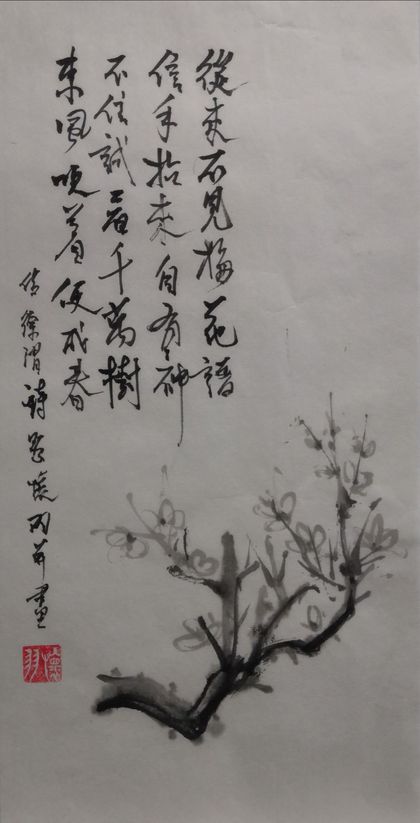 從來不見梅花譜
信手拈來自有神
不信試看千萬樹
東風吹着便成春
借徐渭詩 畫